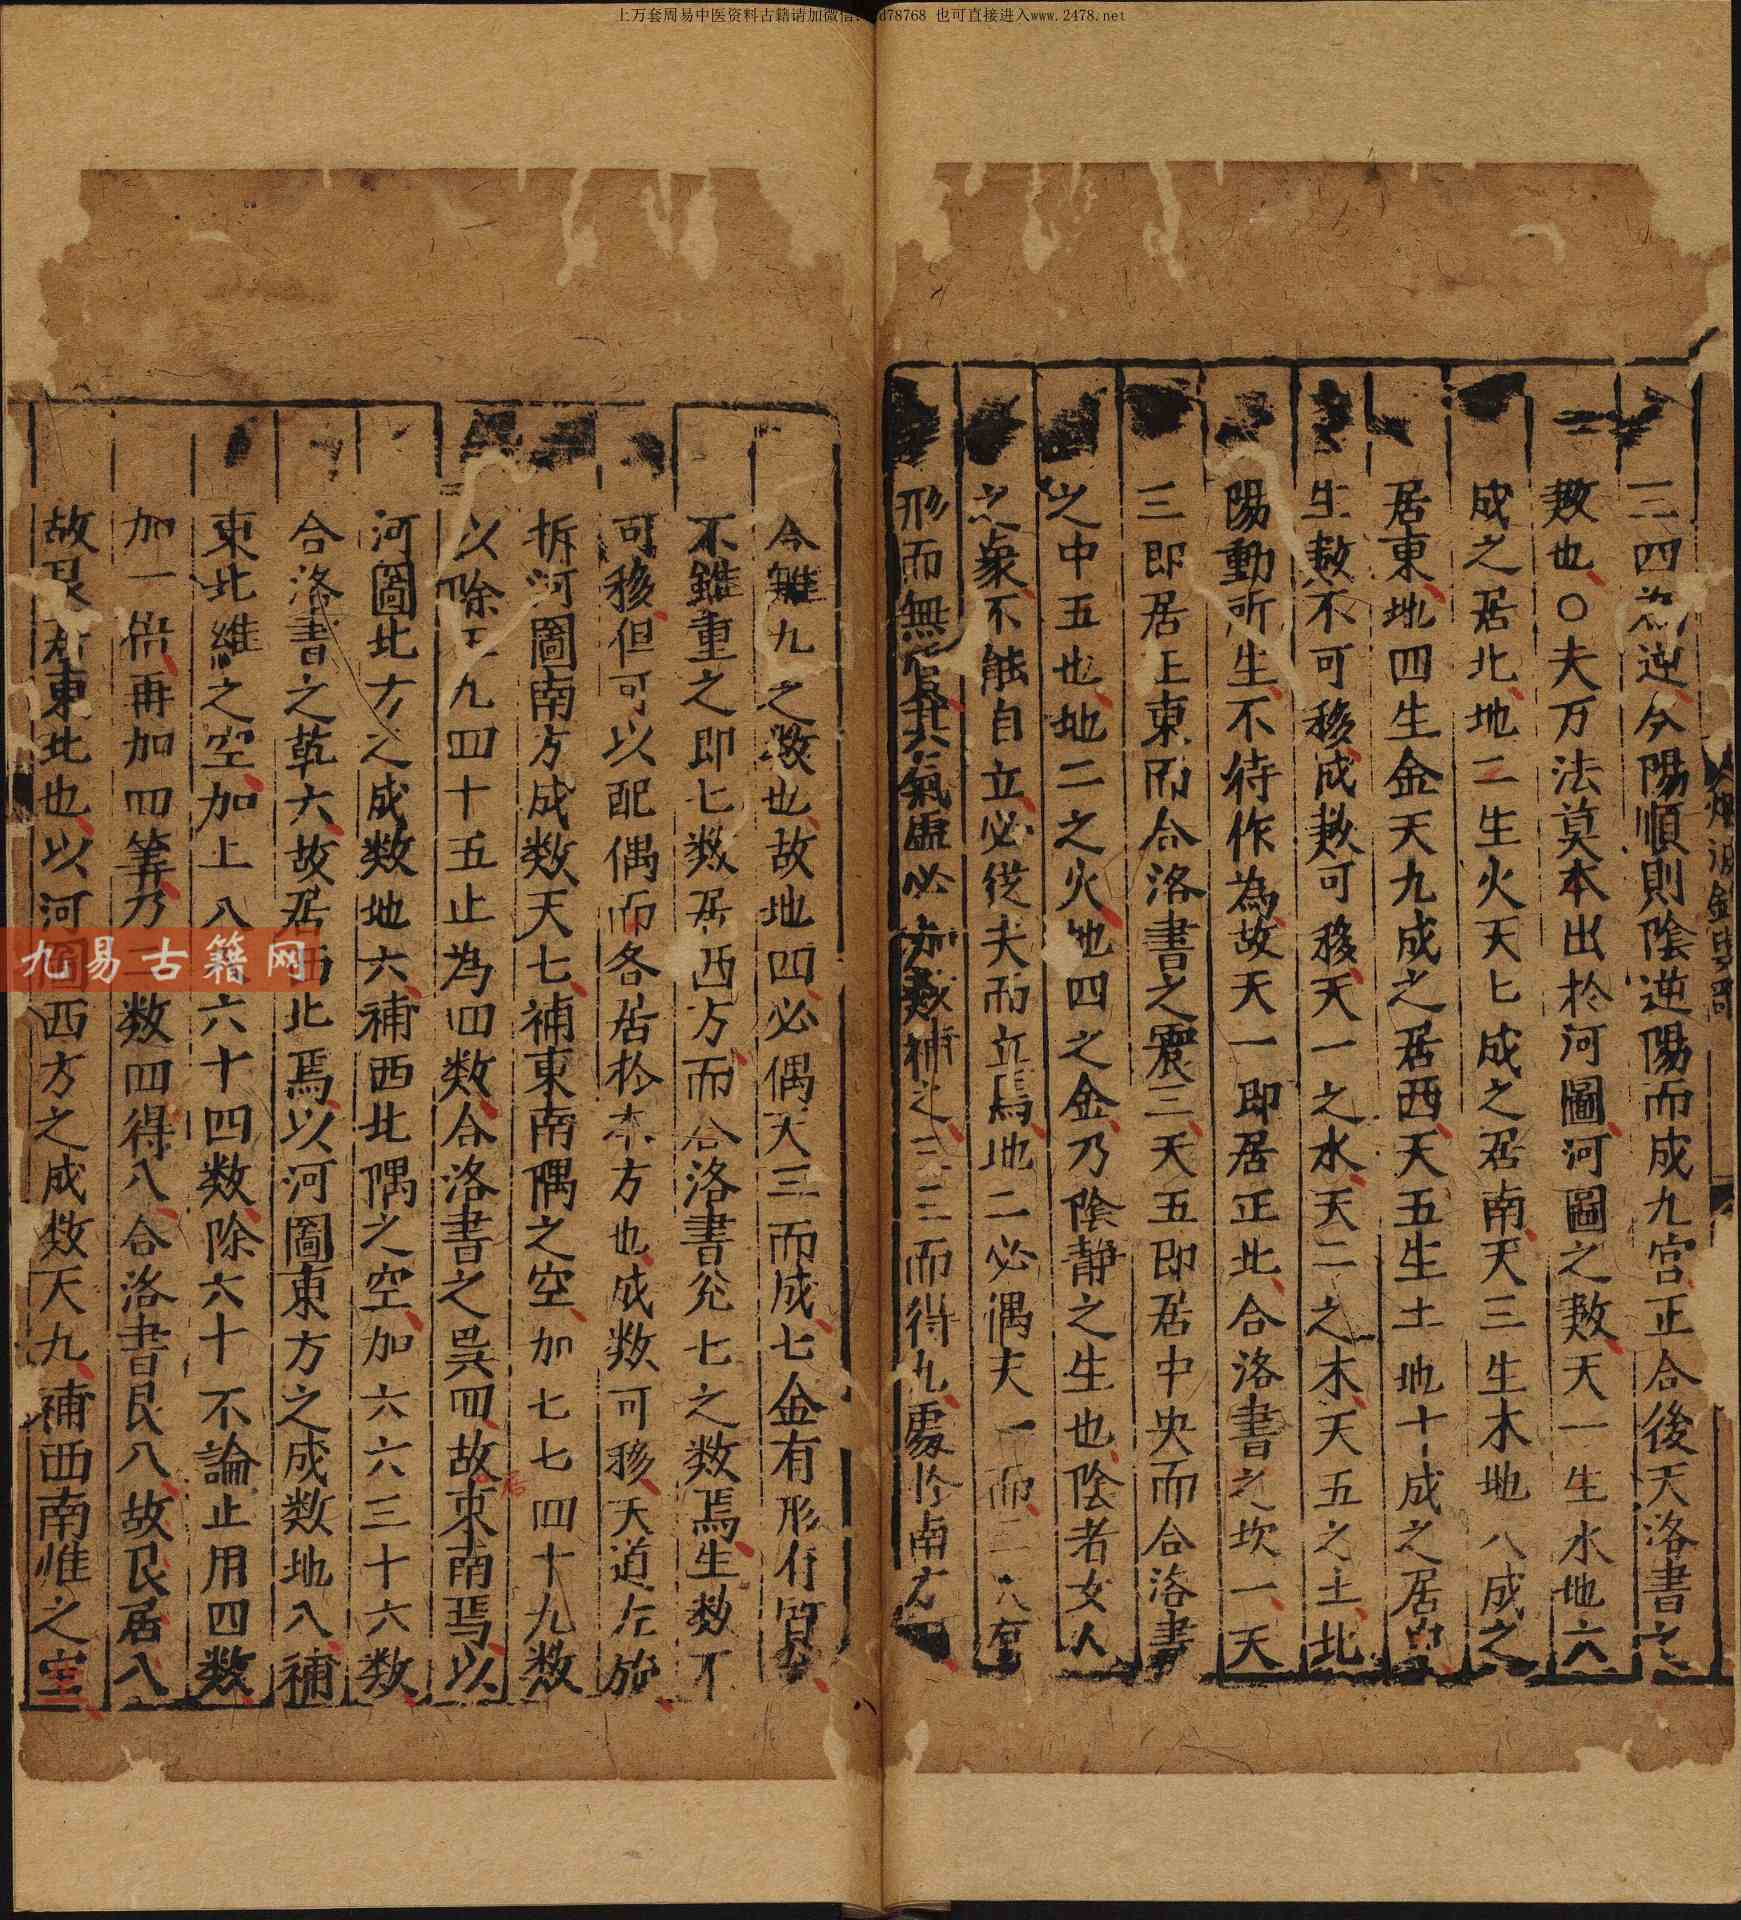 上万套周易中医资料古籍请加微信 d78768 也可直接进入www.2478.net
三四為逆今陽順則陰逆陽而成九宮正合後天洛書之
数也〇夫万法莫本出於河圖河圖之数天一生水地六
成之居北地二生火天七成之居南天三生木地八成之
居東地四生金天九成之居西天五生土地十成之居中
生数不可移成数可移天一之水天三之木天五之土北
陽動所生不待作為故天一即居正北合洛書之坎一天
三即居正東而合洛書之震三天五即居中央而合洛書
之中五也地二之火地四之金乃陰静之生也陰者女人
之象不能自立必從夫而立焉地二必偶夫一而
形而無質其氣虚必加数補之三三而得九處於南方
今雖九之数也故地四必偶天三而成七金有形有質
不雖重之即七数居西方而合洛書兌七之数焉生数不
可移但可以配偶而各居於本方也成数可移天道左旋
拆河圖南方成数天七補東南隅之空加七七四十九数
以除五九四十五止為四数合洛書之巽四故東南焉以
居
河圖北方之成数地六補西北隅之空加六六三十六数
合洛書之乾六故居西北焉以河圖東方之成数地八補
東北維之空加上八八六十四数除六十不論止用四数
加一倍再加四筭乃二数四得八合洛書艮八故艮居八
故艮居東北也以河圖西方之成数天九補西南惟之空
九易古籍网